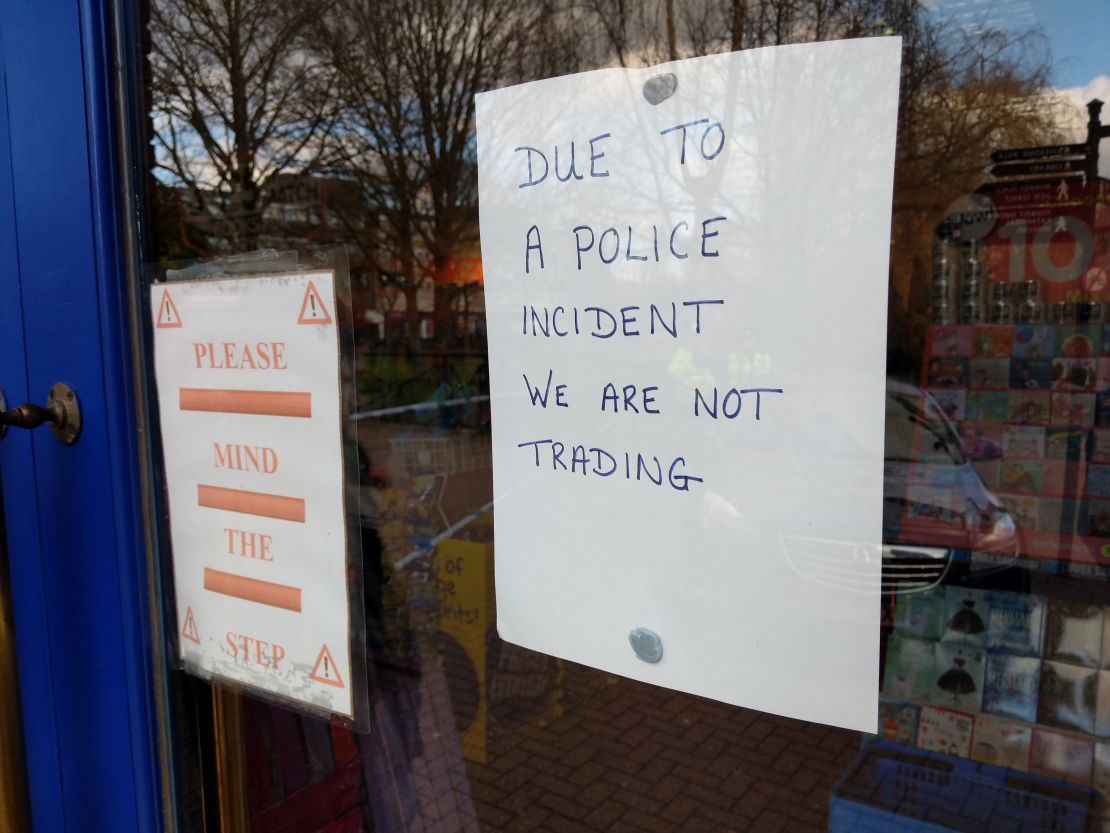 PLEASE
MIND
THE
STEP
DUE TO
A POLICE
INCIDENT
WE ARE NOT
TRADING
10
of